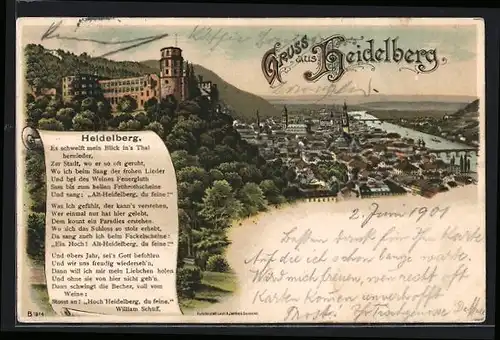 Gruss
aus
Heidelberg.
Heidelberg.
Es schweift mein Blick in's Thal
hernieder,
Zur Stadt, wo er so oft geruht,
Wo ich beim Sang der frohen Lieder
Und bei des Weines Feuergluth
Sass bis zum hellen Frührothscheine
Und sang: „Alt-Heidelberg, du feine!"
Was ich gefühlt, der kann's verstehen,
Wer einmal nur hat hier gelebt,
Dem konnt ein Paradies erstehen.
Wo sich das Schloss so stolz erhebt,
Da sang auch ich beim Fackelscheine:
„Ein Hoch! Alt-Heidelberg, du feine!"
Und übers Jahr, sei's Gott befohlen
Und wir uns freudig wiederseh'n,
Dann will ich mir mein Liebchen holen
Und ohne sie von hier nicht geh'n.
Dann schwingt die Becher, voll vom
Weine:
Stosst an! „Hoch Heidelberg, du feine."
William Schüff.
2. Juni 1901
danke für Ihre Karte
Auf die ich schon lange warte.
Wird mich freuen, wenn recht oft
Karten kommen unverhofft
Prost!